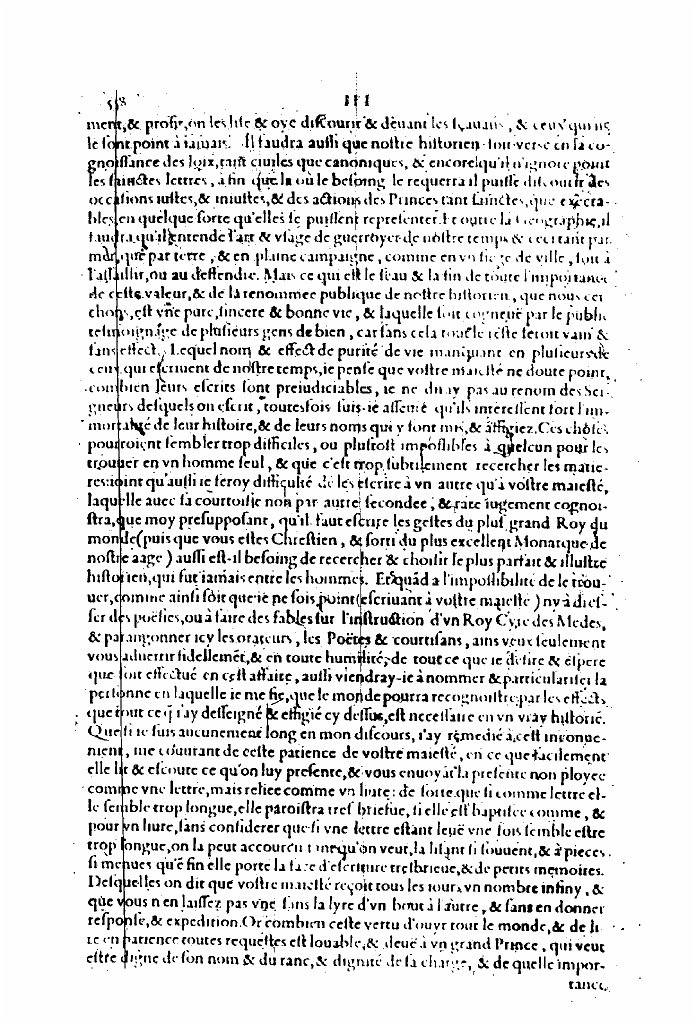 558 III
ment, & profit, on les life & oye difcourir & deuant les fçauans, & ceux qui ne
le font point à iamais. Il faudra auffi que noftre hiftorien foit verfé en la co-
gnoiffance des loix, tant ciuiles que canoniques, & encores qu'il n'ignore point
les fainctes lettres, à fin que là où le befoing le requerra il puiffe difcourir des
occafions iuftes, & iniuftes, & des actions des Princes tant fainctes, que execra-
bles, en quelque forte qu'elles fe puiffent reprefenter. Et outre la Geographie, il
faudra qu'il entende l'art & vfage de guerroyer de noftre temps & ceci tant par
mer, que par terre, & en plaine campaigne, comme en vn fiege de ville, foit à
l'affaillir, ou au deffendre. Mais ce qui eft le feau & la fin de toute l'importance
de cefte valeur, & de la renommee publique de noftre hiftorien, que nous cer
chons, eft vne pure, fincere & bonne vie, & laquelle foit cogneuë par le public
tefmoignage de plufieurs gens de bien, car fans cela tout le refte feroit vain &
fans effect. Lequel nom & effect de purité de vie manquant en plufieurs de
ceux qui efcriuent de noftre temps, ie penfe que voftre maiefté ne doute point,
combien leurs efcrits font preiudiciables, ie ne diray pas au renom des Sei-
gneurs defquels on efcrit, toutesfois fuis-ie affeuré qu'ils intereffent fort l'im-
mortalité de leur hiftoire, & de leurs noms qui y font mis, & affigiez. Ces chofes
pourroient fembler trop difficiles, ou pluftoft impoffibles à quelcun pour les
trouuer en vn homme feul, & que c'eft trop fubtilement recercher les matie-
res: ioint qu'auffi ie feroy difficulté de les efcrire à vn autre qu'à voftre maiefté,
laquelle auec fa courtoifie non par autre fecondee, & rare iugement cognoi-
ftra, que moy prefuppofant, qu'il faut efcrire les geftes du plus grand Roy du
monde (puis que vous eftes Chreftien, & forti du plus excellent Monarque de
noftre aage) auffi eft-il befoing de recercher & choifir le plus parfait & illuftre
hiftorien, qui fut iamais entre les hommes. Et quãd a l'impoffibilité de le trou-
uer, comme ainfi foit que ie ne fois point (efcriuant à voftre maiefté) ny à dref-
fer des poëfies, ou à faire des fables fur l'inftruction d'vn Roy Cyre des Medes,
& parangonner icy les orateurs, les Poëtes & courtifans, ains veux feulement
vous aduertir fidellemẽt, & en toute humilité, de tout ce que ie defire & efpere
que foit effectué en ceft affaire, auffi viendray-ie à nommer & particularifer la
perfonne en laquelle ie me fie, que le monde pourra recognoiftre par les effects,
que tout ce q̃ i'ay deffeigné & effigié cy deffus, eft neceffaire en vn vray hiftoriẽ.
Que fi ie fuis aucunement long en mon difcours, i'ay remedié à ceft inconue-
nient, me couurant de cefte patience de voftre maiefté, en ce que facilement
elle lit & efcoute ce qu'on luy prefente, & vous enuoyãt la prefente non ployee
comme vne lettre, mais reliee comme vn liure: de forte que fi comme lettre el-
le femble trop longue, elle paroiftra tref briefue, fi elle eft baptifee comme, &
pour vn liure, fans confiderer que fi vne lettre eftant leuë vne fois femble eftre
trop longue, on la peut accourcir tant qu'on veut, la lifant fi fouuent, & à pieces
fi menues qu'ẽ fin elle porte la face d'efcriture trefbrieue, & de petits memoires.
Defquelles on dit que voftre maiefté reçoit tous les iours vn nombre infiny, &
que vous n en laiffez pas vne fans la lyre d'vn bout à l'autre, & fans en donner
refponfe, & expedition. Or combien cefte vertu d'ouyr tout le monde, & de li
re en patience toutes requeftes eft louable, & deuë à vn grand Prince, qui veut
eftre digne de fon nom & du ranc, & dignité de fa charge, & de quelle impor-
tance,